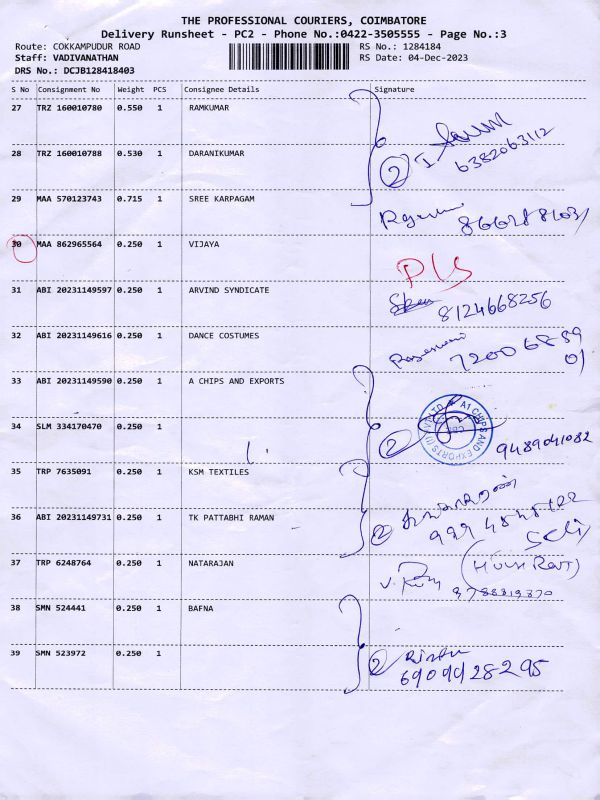 THE PROFESSIONAL COURIERS, COIMBATORE
Delivery Runsheet - PC2 - Phone No.:0422-3505555 - Page No.:3
Route: COKKAMPUDUR ROAD RS No.: 1284184
Staff: VADIVANATHAN RS Date: 04-Dec-2023
DRS No.: DCJB128418403
S No Consignment No Weight PCS Consignee Details Signature
27 TRZ 160010780 0.550 1 RAMKUMAR
28 TRZ 160010788 0.530 1 DARANIKUMAR 2
6382063112
29 MAA 570123743 0.715 1 SREE KARPAGAM
30 MAA 862965564 0.250 1 VIJAYA
31 ABI 20231149597 0.250 1 ARVIND SYNDICATE 8124668256
32 ABI 20231149616 0.250 1 DANCE COSTUMES
33 ABI 20231149590 0.250 1 A CHIPS AND EXPORTS
34 SLM 334170470 0.250 1 2 A1 CHIPS AND EXPORTS (I) 9489041082
35 TRP 7635091 0.250 1 KSM TEXTILES
36 ABI 20231149731 0.250 1 TK PATTABHI RAMAN 2
37 TRP 6248764 0.250 1 NATARAJAN
38 SMN 524441 0.250 1 BAFNA
39 SMN 523972 0.250 1 2